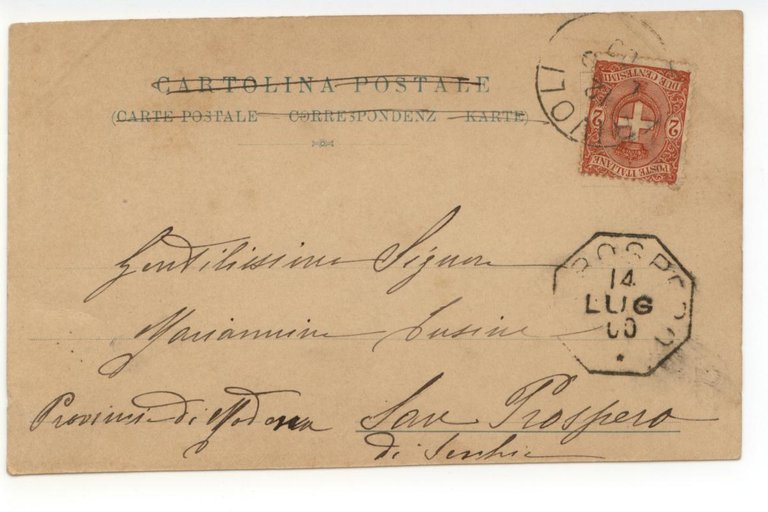 CARTOLINA POSTALE
(CARTE POSTALE CORRESPONDENZ KARTE)
DUE CENTESIMI
2 2
POSTE ITALIANE
Gentilissima Signora
Mariannina
Provincia di Modena San Prospero
di Secchia
14
LUG
00